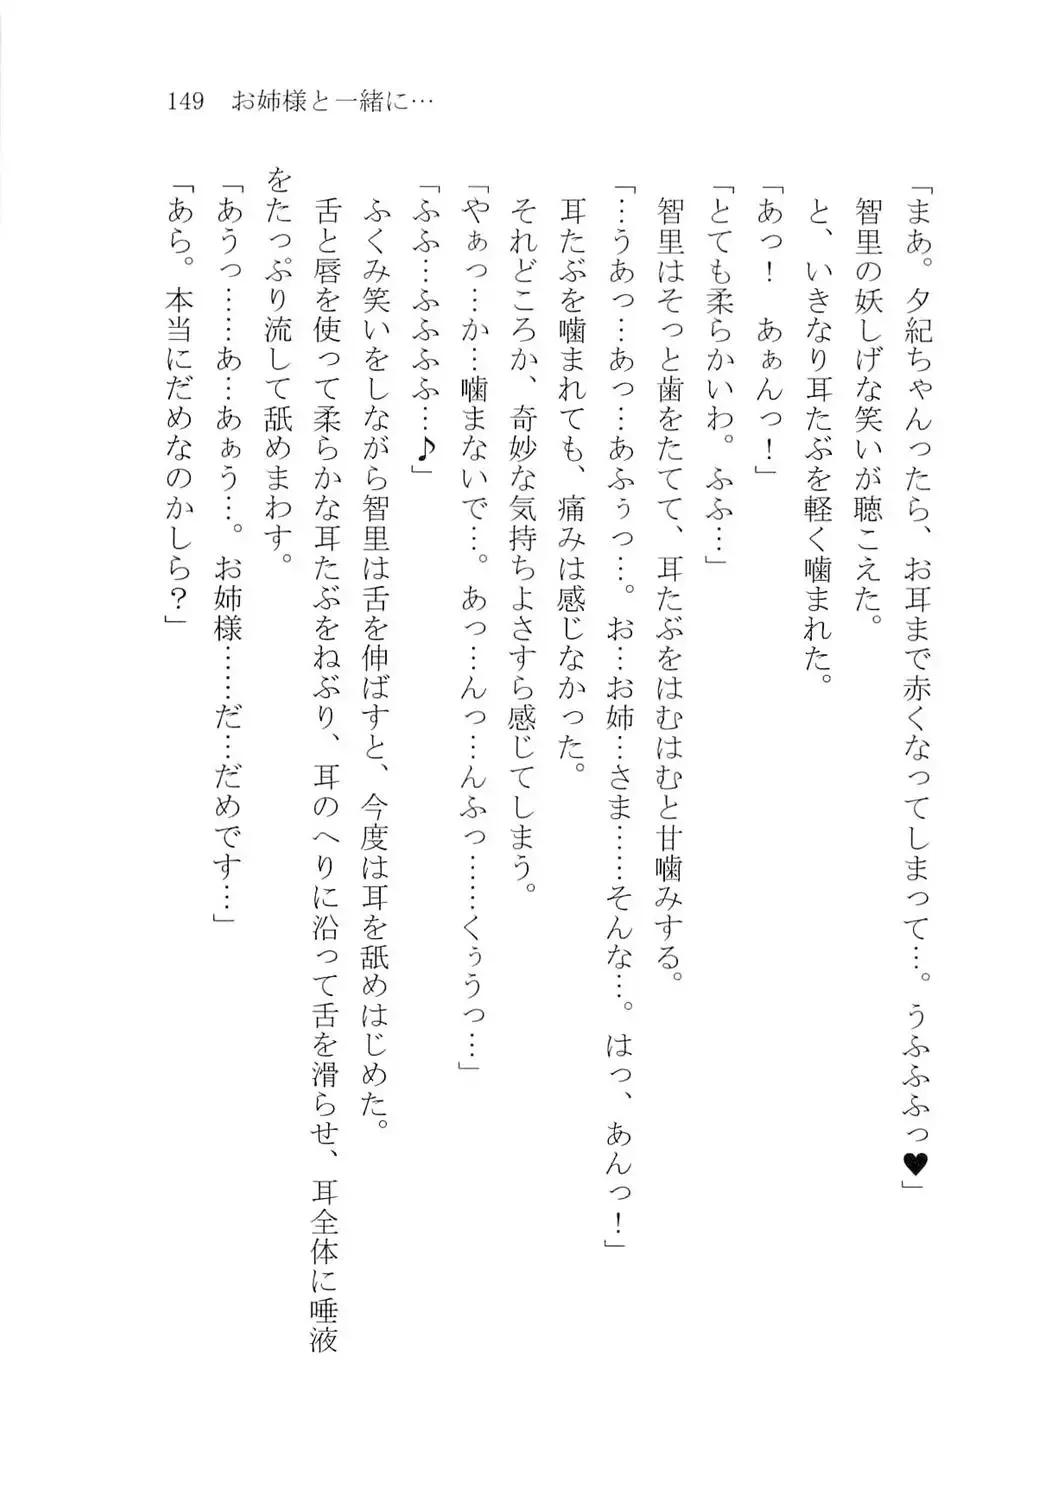 149 お姉様と一緒に…
「まあ。夕紀ちゃんったら、お耳まで赤くなってしまって…。うふふふっ♥」
智里の妖しげな笑いが聴こえた。
と、いきなり耳たぶを軽く噛まれた。
「あっ！　あぁんっ！」
「とても柔らかいわ。ふふ…」
智里はそっと歯をたてて、耳たぶをはむはむと甘噛みする。
「…うあっ…あっ…あふぅっ…。お…お姉…さま……そんな…。はっ、あんっ！」
耳たぶを噛まれても、痛みは感じなかった。
それどころか、奇妙な気持ちよさすら感じてしまう。
「やぁっ…か…噛まないで…。あっ…んっ…んふっ……くぅうっ…」
「ふふ…ふふふふ…♪」
ふくみ笑いをしながら智里は舌を伸ばすと、今度は耳を舐めはじめた。
舌と唇を使って柔らかな耳たぶをねぶり、耳のへりに沿って舌を滑らせ、耳全体に唾液
をたっぷり流して舐めまわす。
「あうっ……あ…あぁう…。お姉様……だ…だめです…」
「あら。本当にだめなのかしら？」